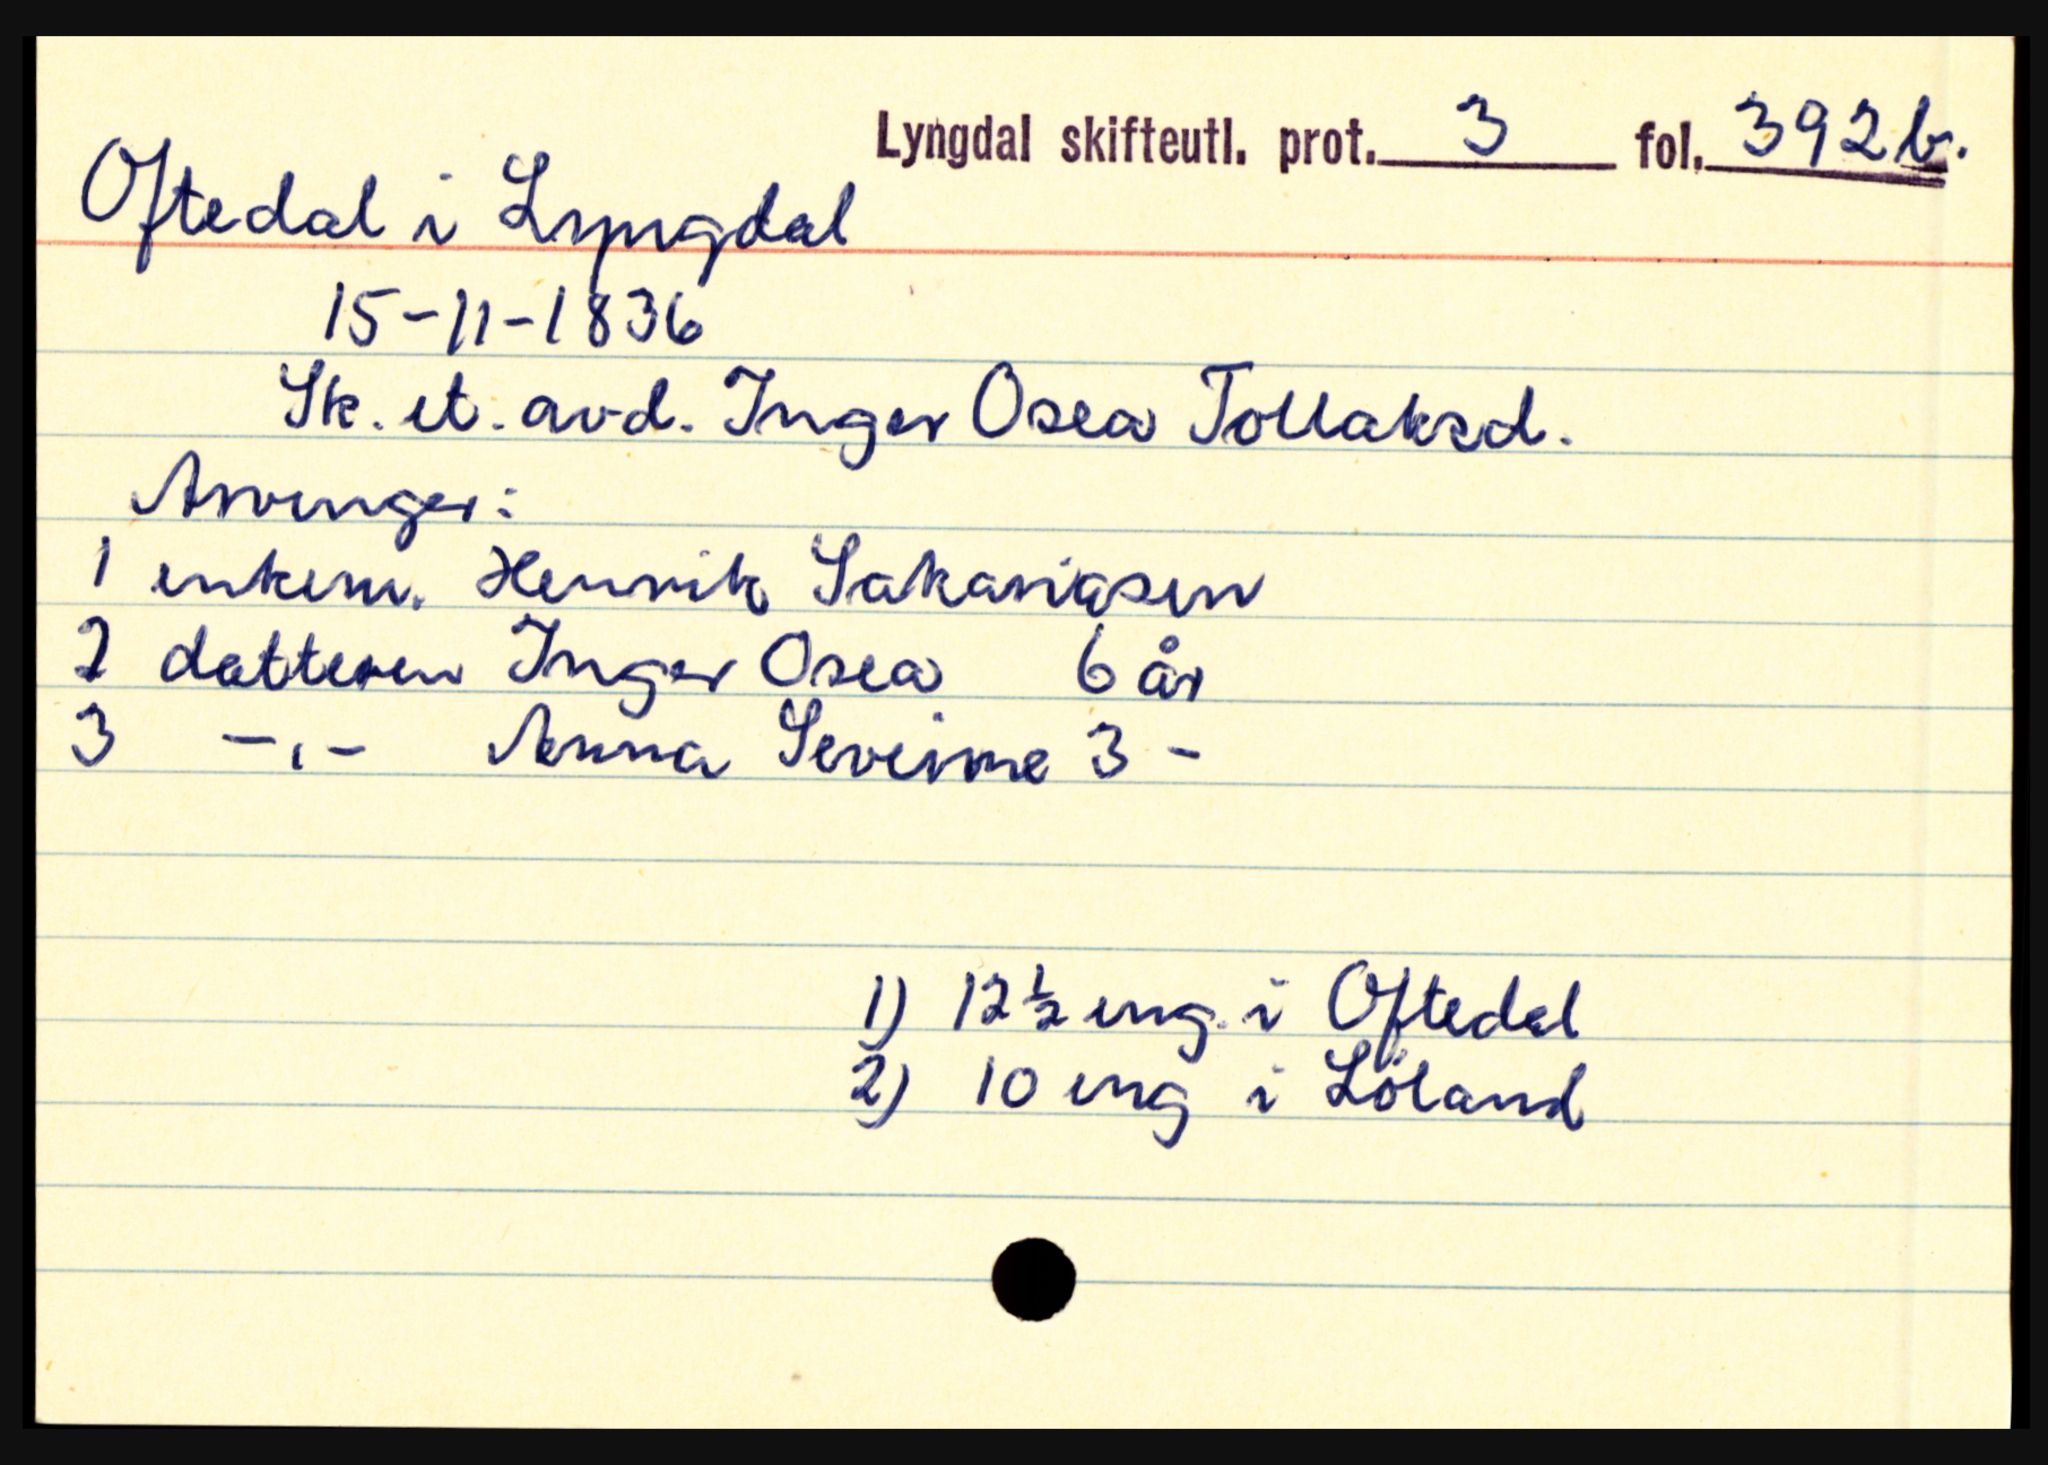 Lyngdal skifteutl. prot. 3 fol. 392b.
Oftedal i Lyngdal
15-11-1836
Sk. et. avd. Inger Osea Tollaksd.
Arvinger:
1 enkem. Henrik Sakariasen
2 datteren Inger Osea 6 år
3 -,- Anna Severine 3 -
1) 12 ½ eng. i Oftedal
2) 10 eng i Löland